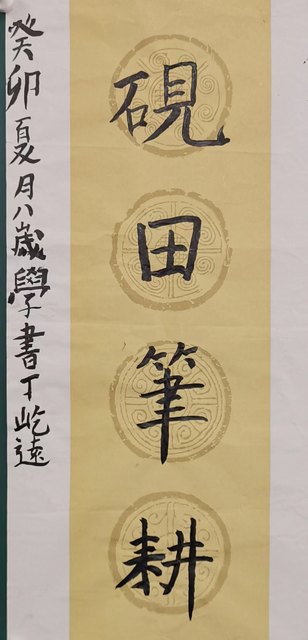 硯田筆耕
癸卯夏月八歲學書丁屹遠